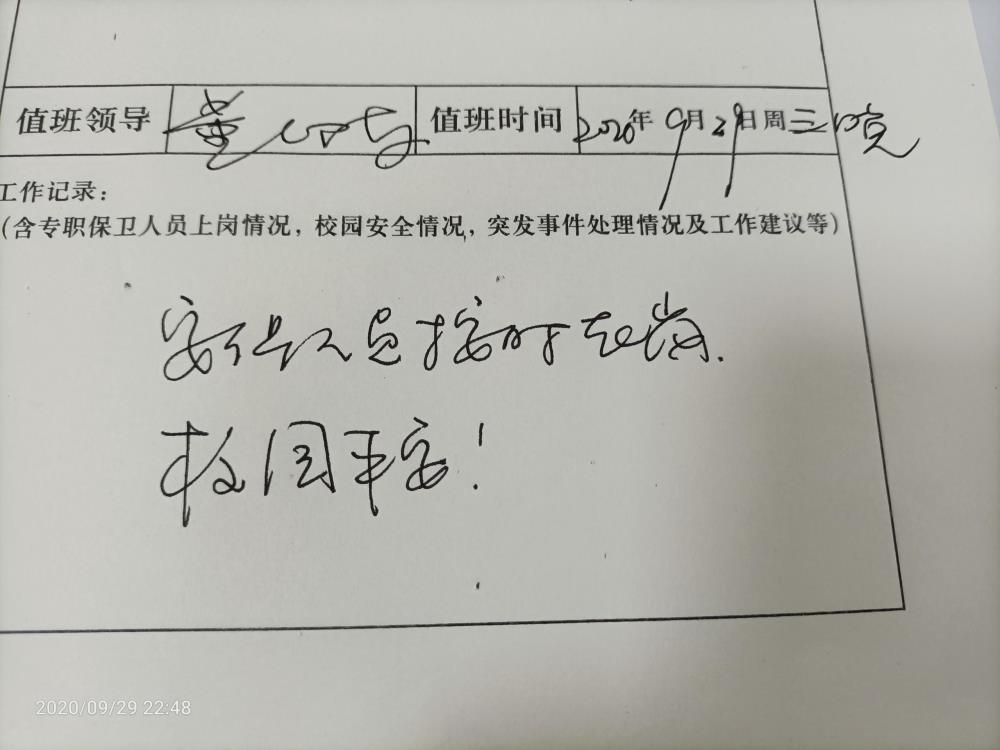 值班领导 董 值班时间 2020年9月29日周三晚
工作记录：
（含专职保卫人员上岗情况，校园安全情况，突发事件处理情况及工作建议等）
安保人员按时在岗.
校园平安！
2020/09/29 22:48